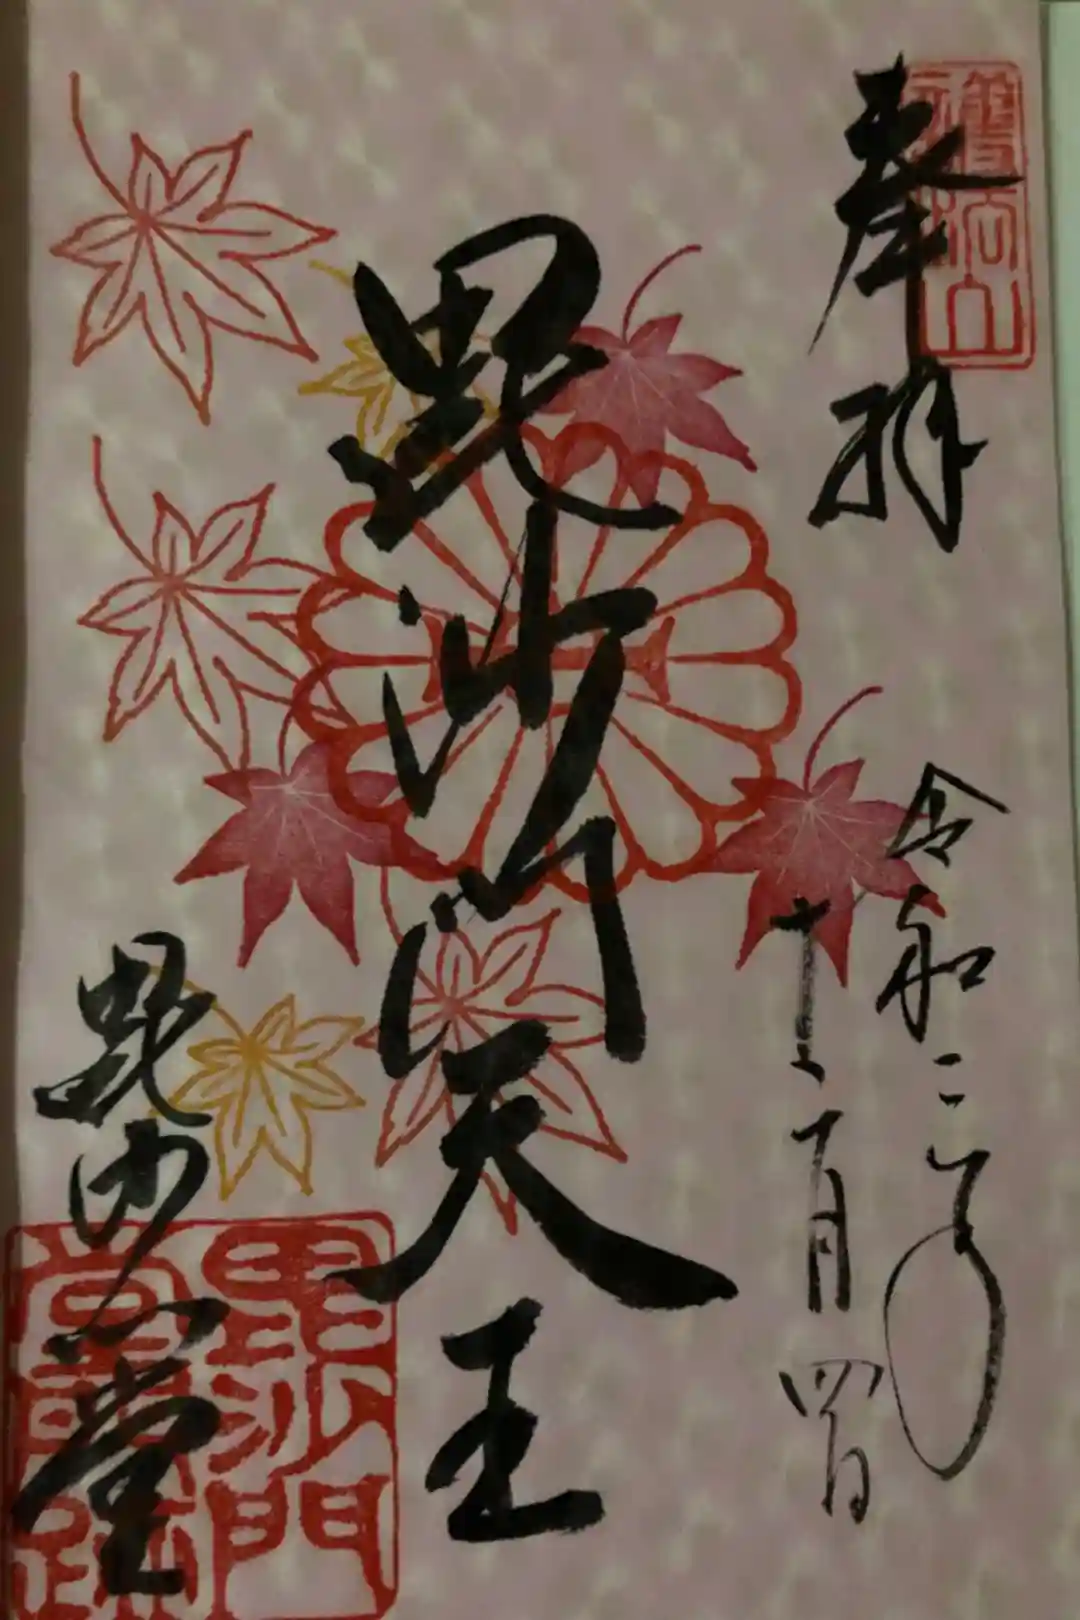 護法山
奉拝
令和二年
十一月四日
毘沙門天王
毘沙門堂
毘沙門
堂門跡